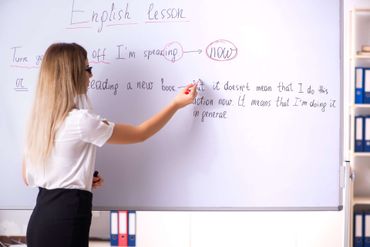 English lesson
Turn off I'm speaking → now
or reading a new book - but it doesn't mean that I do this
action now. It means that I'm doing it
in general